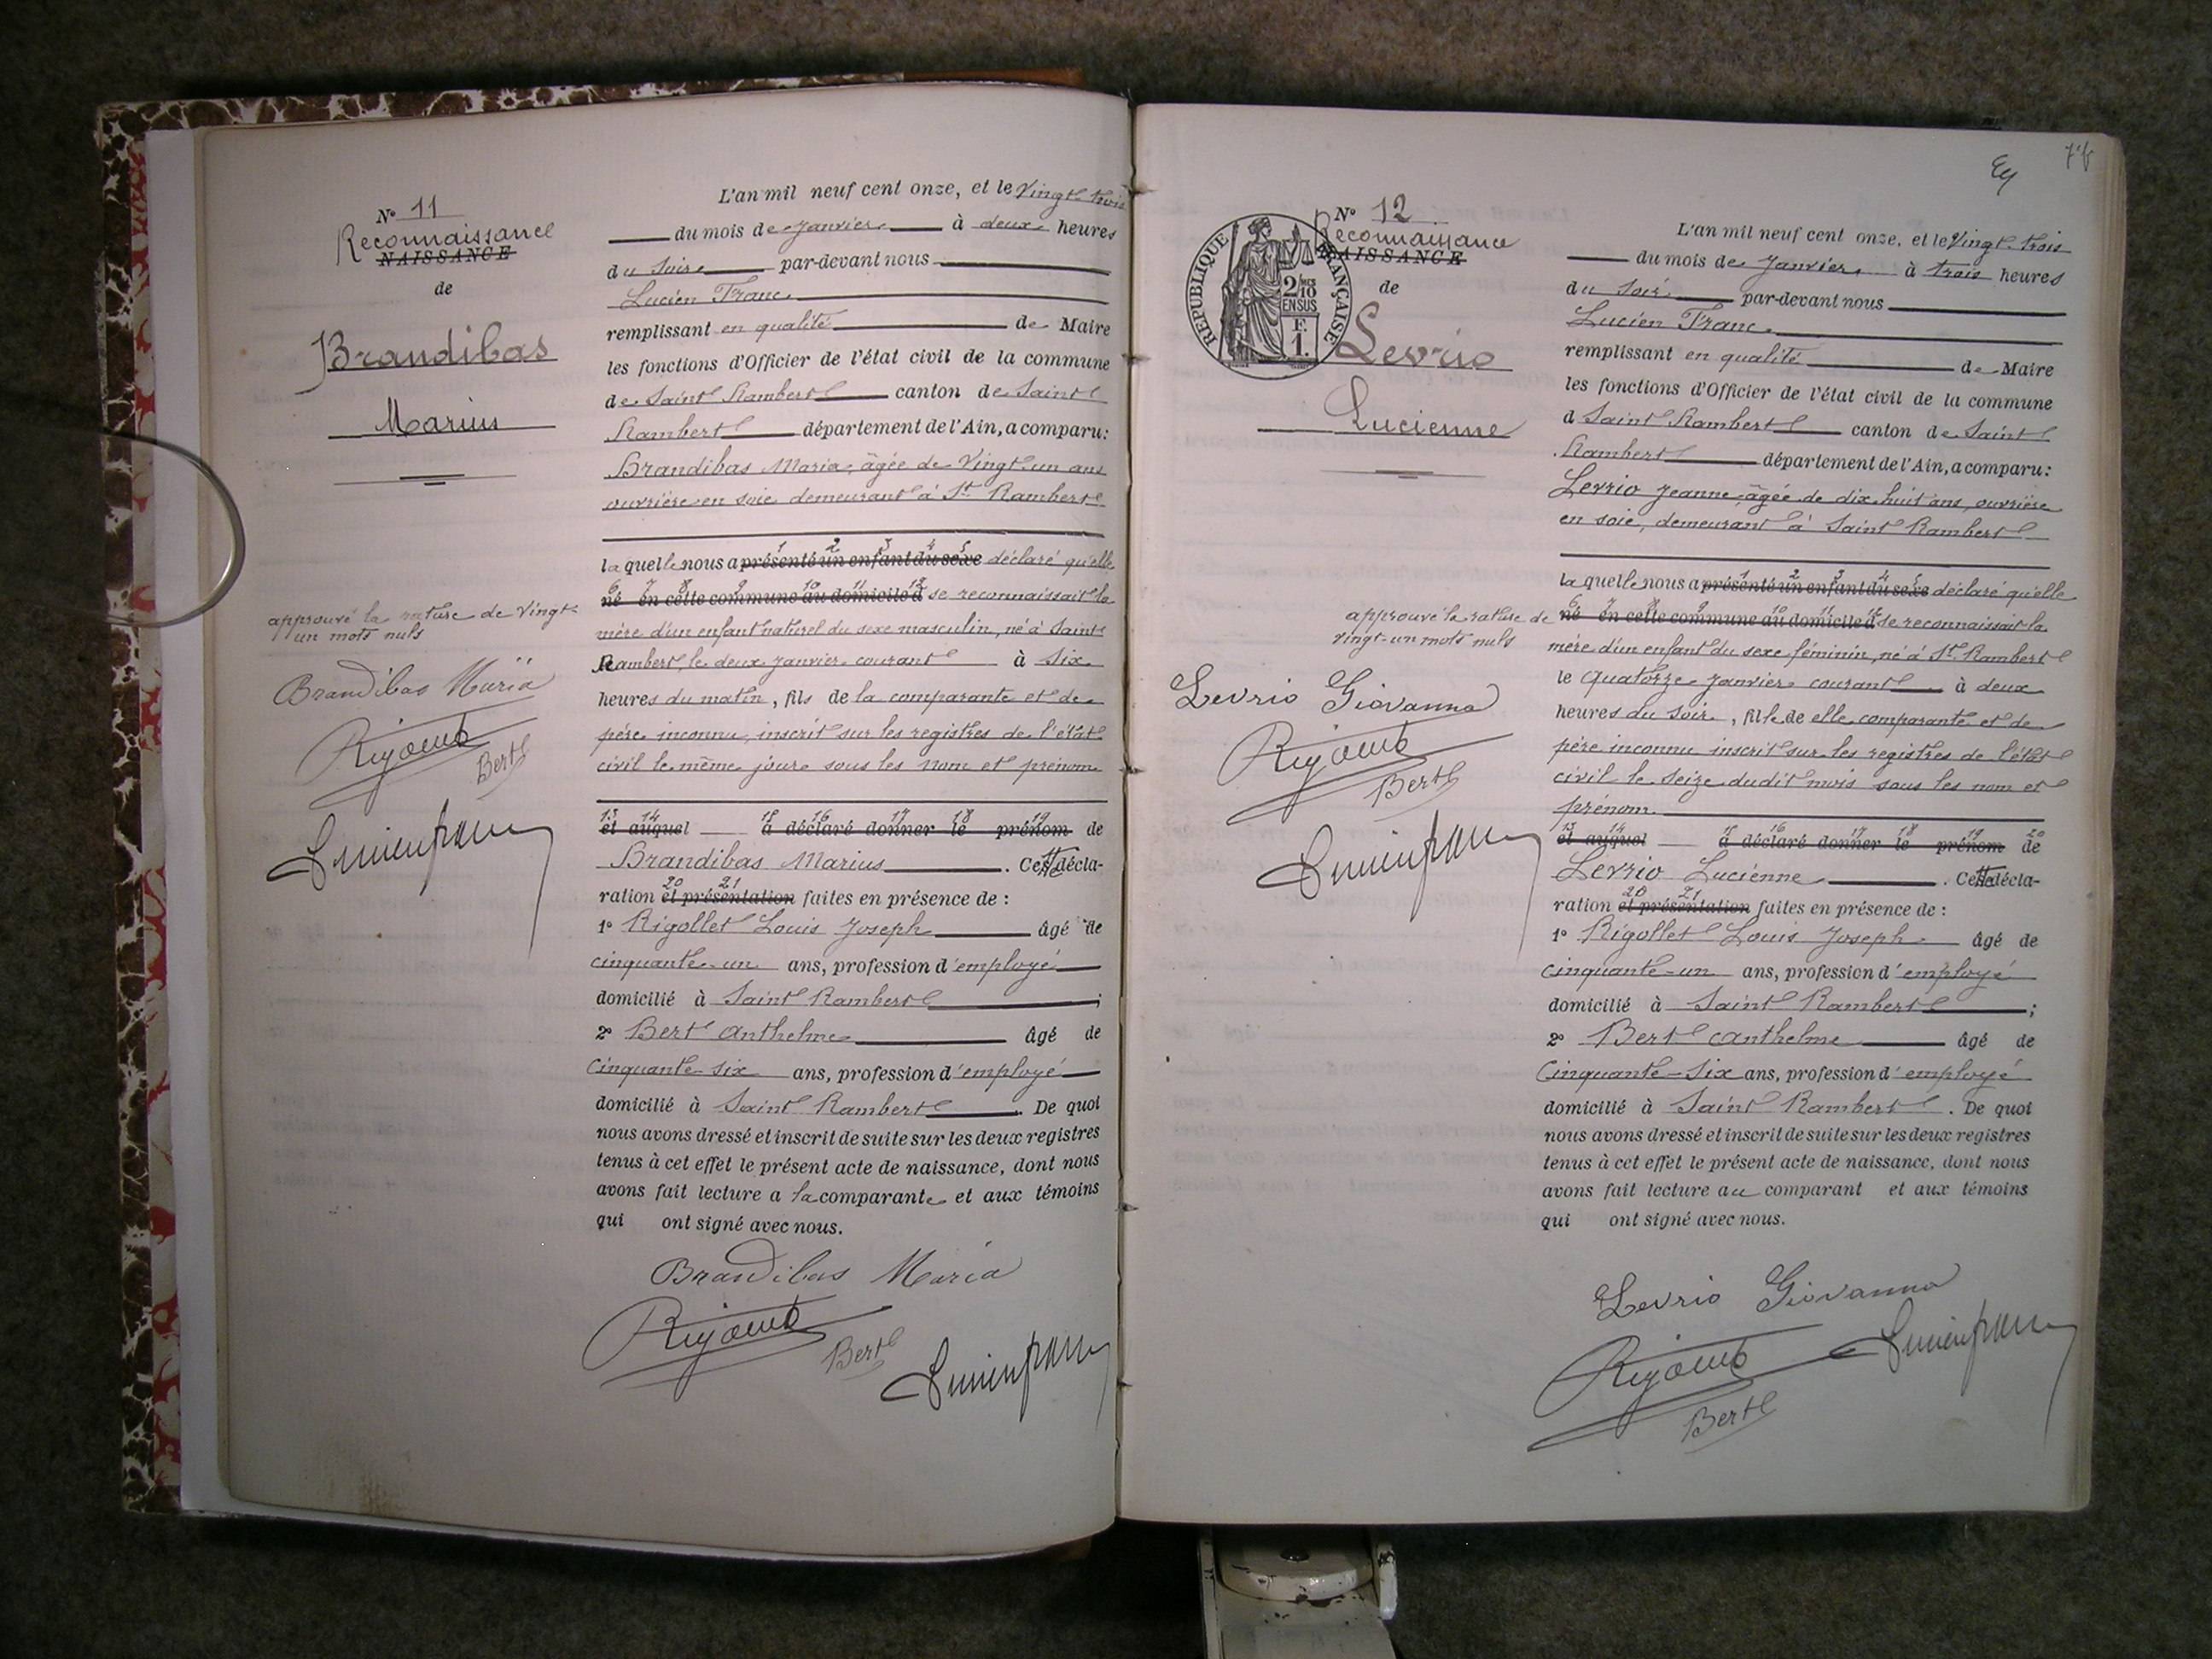 N° 11
Reconnaissance
NAISSANCE
de
Brandibas
Marius
approuvé la rature de vingt
un mots nuls
Brandibas Maria
Bert
L'an mil neuf cent onze, et le vingt-trois
du mois de Janvier à deux heures
du soir par-devant nous
Lucien Franc
remplissant en qualité de Maire
les fonctions d'Officier de l'état civil de la commune
de Saint Rambert canton de Saint
Rambert département de l'Ain, a comparu:
Brandibas Maria, âgée de vingt un ans
ouvrière en soie demeurant à St Rambert
laquelle nous a présenté un enfant du sexe déclaré qu'elle
1 2 3 4 5
né en cette commune au domicile d se reconnaissait la
6 7 8 9 10 11 12
mère d'un enfant naturel du sexe masculin, né à Saint
Rambert, le deux janvier courant à six
heures du matin, fils de la comparante et de
père inconnu, inscrit sur les registres de l'état
civil le même jour sous les nom et prénom
13 14 15 16 17 18 19
et auquel a déclaré donner le prénom de
Brandibas Marius. Cette décla-
20 21
ration et présentation faites en présence de :
1° Rigollet Louis Joseph âgé de
cinquante-un ans, profession d'employé
domicilié à Saint Rambert ;
2° Bert Anthelme âgé de
Cinquante six ans, profession d'employé
domicilié à Saint Rambert. De quoi
nous avons dressé et inscrit de suite sur les deux registres
tenus à cet effet le présent acte de naissance, dont nous
avons fait lecture a la comparante et aux témoins
qui ont signé avec nous.
Brandibas Maria
Bert
Ey
N° 12
Reconnaissance
NAISSANCE
de
REPUBLIQUE FRANÇAISE
2/10 MES
EN SUS
F.
1.
Levrio
Lucienne
approuvé la rature de
vingt-un mots nuls
Levrio Giovanna
Bert
L'an mil neuf cent onze, et le vingt-trois
du mois de Janvier à trois heures
du soir par-devant nous
Lucien Franc
remplissant en qualité de Maire
les fonctions d'Officier de l'état civil de la commune
d Saint Rambert canton de Saint
Rambert département de l'Ain, a comparu:
Levrio Jeanne, âgée de dix huit ans, ouvrière
en soie, demeurant à Saint Rambert
laquelle nous a présenté un enfant du sexe déclaré qu'elle
1 2 3 4 5
né en cette commune au domicile d se reconnaissait la
6 7 8 9 10 11 12
mère d'un enfant du sexe féminin, né à St. Rambert
le quatorze Janvier courant à deux
heures du soir, fille de elle comparante et de
père inconnu inscrit sur les registres de l'état
civil le seize dudit mois sous les nom et
prénom
13 14 15 16 17 18 19 20
et auquel a déclaré donner le prénom de
Levrio Lucienne. Cette décla-
20 21
ration et présentation faites en présence de :
1° Rigollet Louis Joseph âgé de
cinquante-un ans, profession d'employé
domicilié à Saint Rambert ;
2° Bert Anthelme âgé de
Cinquante-six ans, profession d'employé
domicilié à Saint Rambert. De quoi
nous avons dressé et inscrit de suite sur les deux registres
tenus à cet effet le présent acte de naissance, dont nous
avons fait lecture au comparant et aux témoins
qui ont signé avec nous.
Levrio Giovanna
Bert